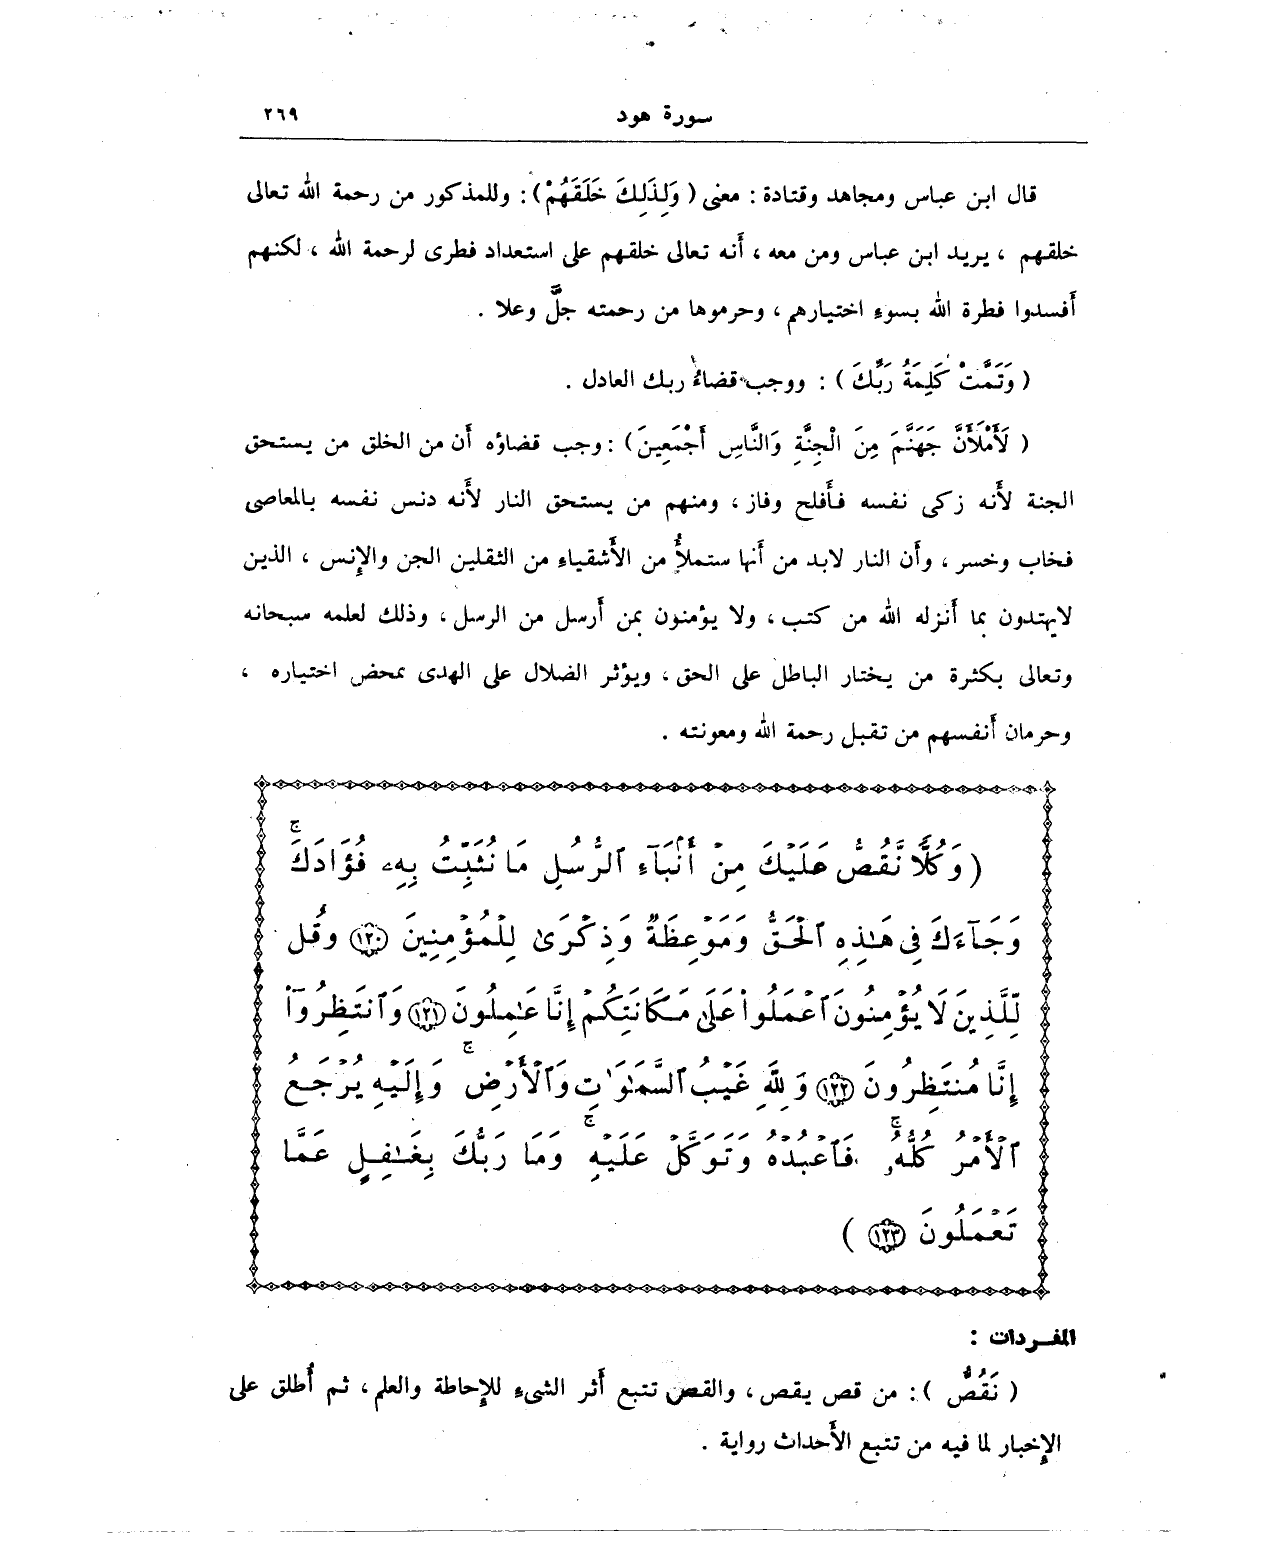 سورة هود ٢٦٩
قال ابن عباس ومجاهد وقتادة : معنى ( وَلِذَلِكَ خَلَقَهُمْ ) : وللمذكور من رحمة الله تعالى
خلقهم ، يريد ابن عباس ومن معه ، أنه تعالى خلقهم على استعداد فطرى لرحمة الله ، لكنهم
أفسدوا فطرة الله بسوء اختيارهم ، وحرموها من رحمته جلَّ وعلا .
( وَتَمَّتْ كَلِمَةُ رَبِّكَ ) : ووجب قضاءُ ربك العادل .
( لَأَمْلَأَنَّ جَهَنَّمَ مِنَ الْجِنَّةِ وَالنَّاسِ أَجْمَعِينَ ) : وجب قضاؤه أن من الخلق من يستحق
الجنة لأنه زكى نفسه فأفلح وفاز ، ومنهم من يستحق النار لأنه دنس نفسه بالمعاصى
فخاب وخسر ، وأن النار لابد من أنها ستملأُ من الأشقياء من الثقلين الجن والإنس ، الذين
لايهتدون بما أنزله الله من كتب ، ولا يؤمنون بمن أرسل من الرسل ، وذلك لعلمه سبحانه
وتعالى بكثرة من يختار الباطل على الحق ، ويؤثر الضلال على الهدى بمحض اختياره ،
وحرمان أنفسهم من تقبل رحمة الله ومعونته .
( وَكُلًّا نَّقُصُّ عَلَيْكَ مِنْ أَنۢبَآءِ ٱلرُّسُلِ مَا نُثَبِّتُ بِهِۦ فُؤَادَكَ ۚ
وَجَآءَكَ فِى هَـٰذِهِ ٱلْحَقُّ وَمَوْعِظَةٌ وَذِكْرَىٰ لِلْمُؤْمِنِينَ ﴿١٢٠﴾ وَقُل
لِّلَّذِينَ لَا يُؤْمِنُونَ ٱعْمَلُوا۟ عَلَىٰ مَكَانَتِكُمْ إِنَّا عَـٰمِلُونَ ﴿١٢١﴾ وَٱنتَظِرُوٓا۟
إِنَّا مُنتَظِرُونَ ﴿١٢٢﴾ وَلِلَّهِ غَيْبُ ٱلسَّمَـٰوَٰتِ وَٱلْأَرْضِ ۚ وَإِلَيْهِ يُرْجَعُ
ٱلْأَمْرُ كُلُّهُۥ ۚ فَٱعْبُدْهُ وَتَوَكَّلْ عَلَيْهِ ۚ وَمَا رَبُّكَ بِغَـٰفِلٍ عَمَّا
تَعْمَلُونَ ﴿١٢٣﴾ )
المفـردات :
( نَقُصُّ ) : من قص يقص ، والقص تتبع أثر الشىء للإحاطة والعلم ، ثم أُطلق على
الإخبار لما فيه من تتبع الأحداث رواية .